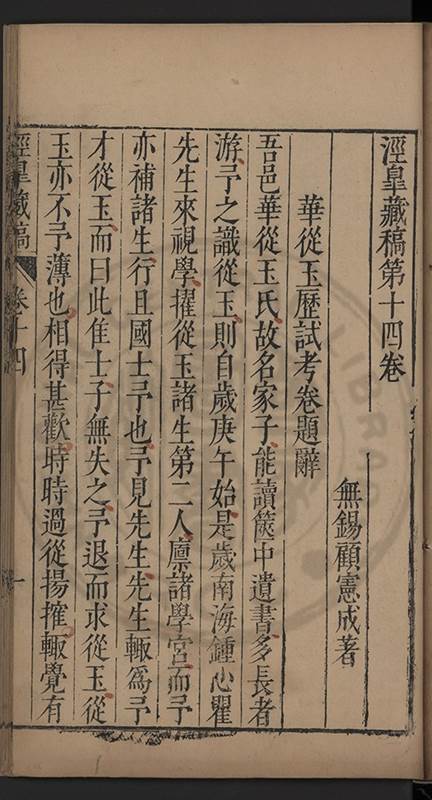 涇臯藏稿第十四卷
無錫顧憲成著
華從玉歷試考卷題辭
吾邑華從玉氏故名家子能讀篋中遺書多長者
游予之識從玉則自歲庚午始是歲南海鍾心瞿
先生來視學擢從玉諸生第二人廪諸學宫而予
亦補諸生行且國士予也予見先生先生輙爲予
才從玉而曰此隹士子無失之予退而求從玉從
玉亦不予薄也相得甚歡時時過從揚搉輙覺有
涇臯藏稿 卷十四 一